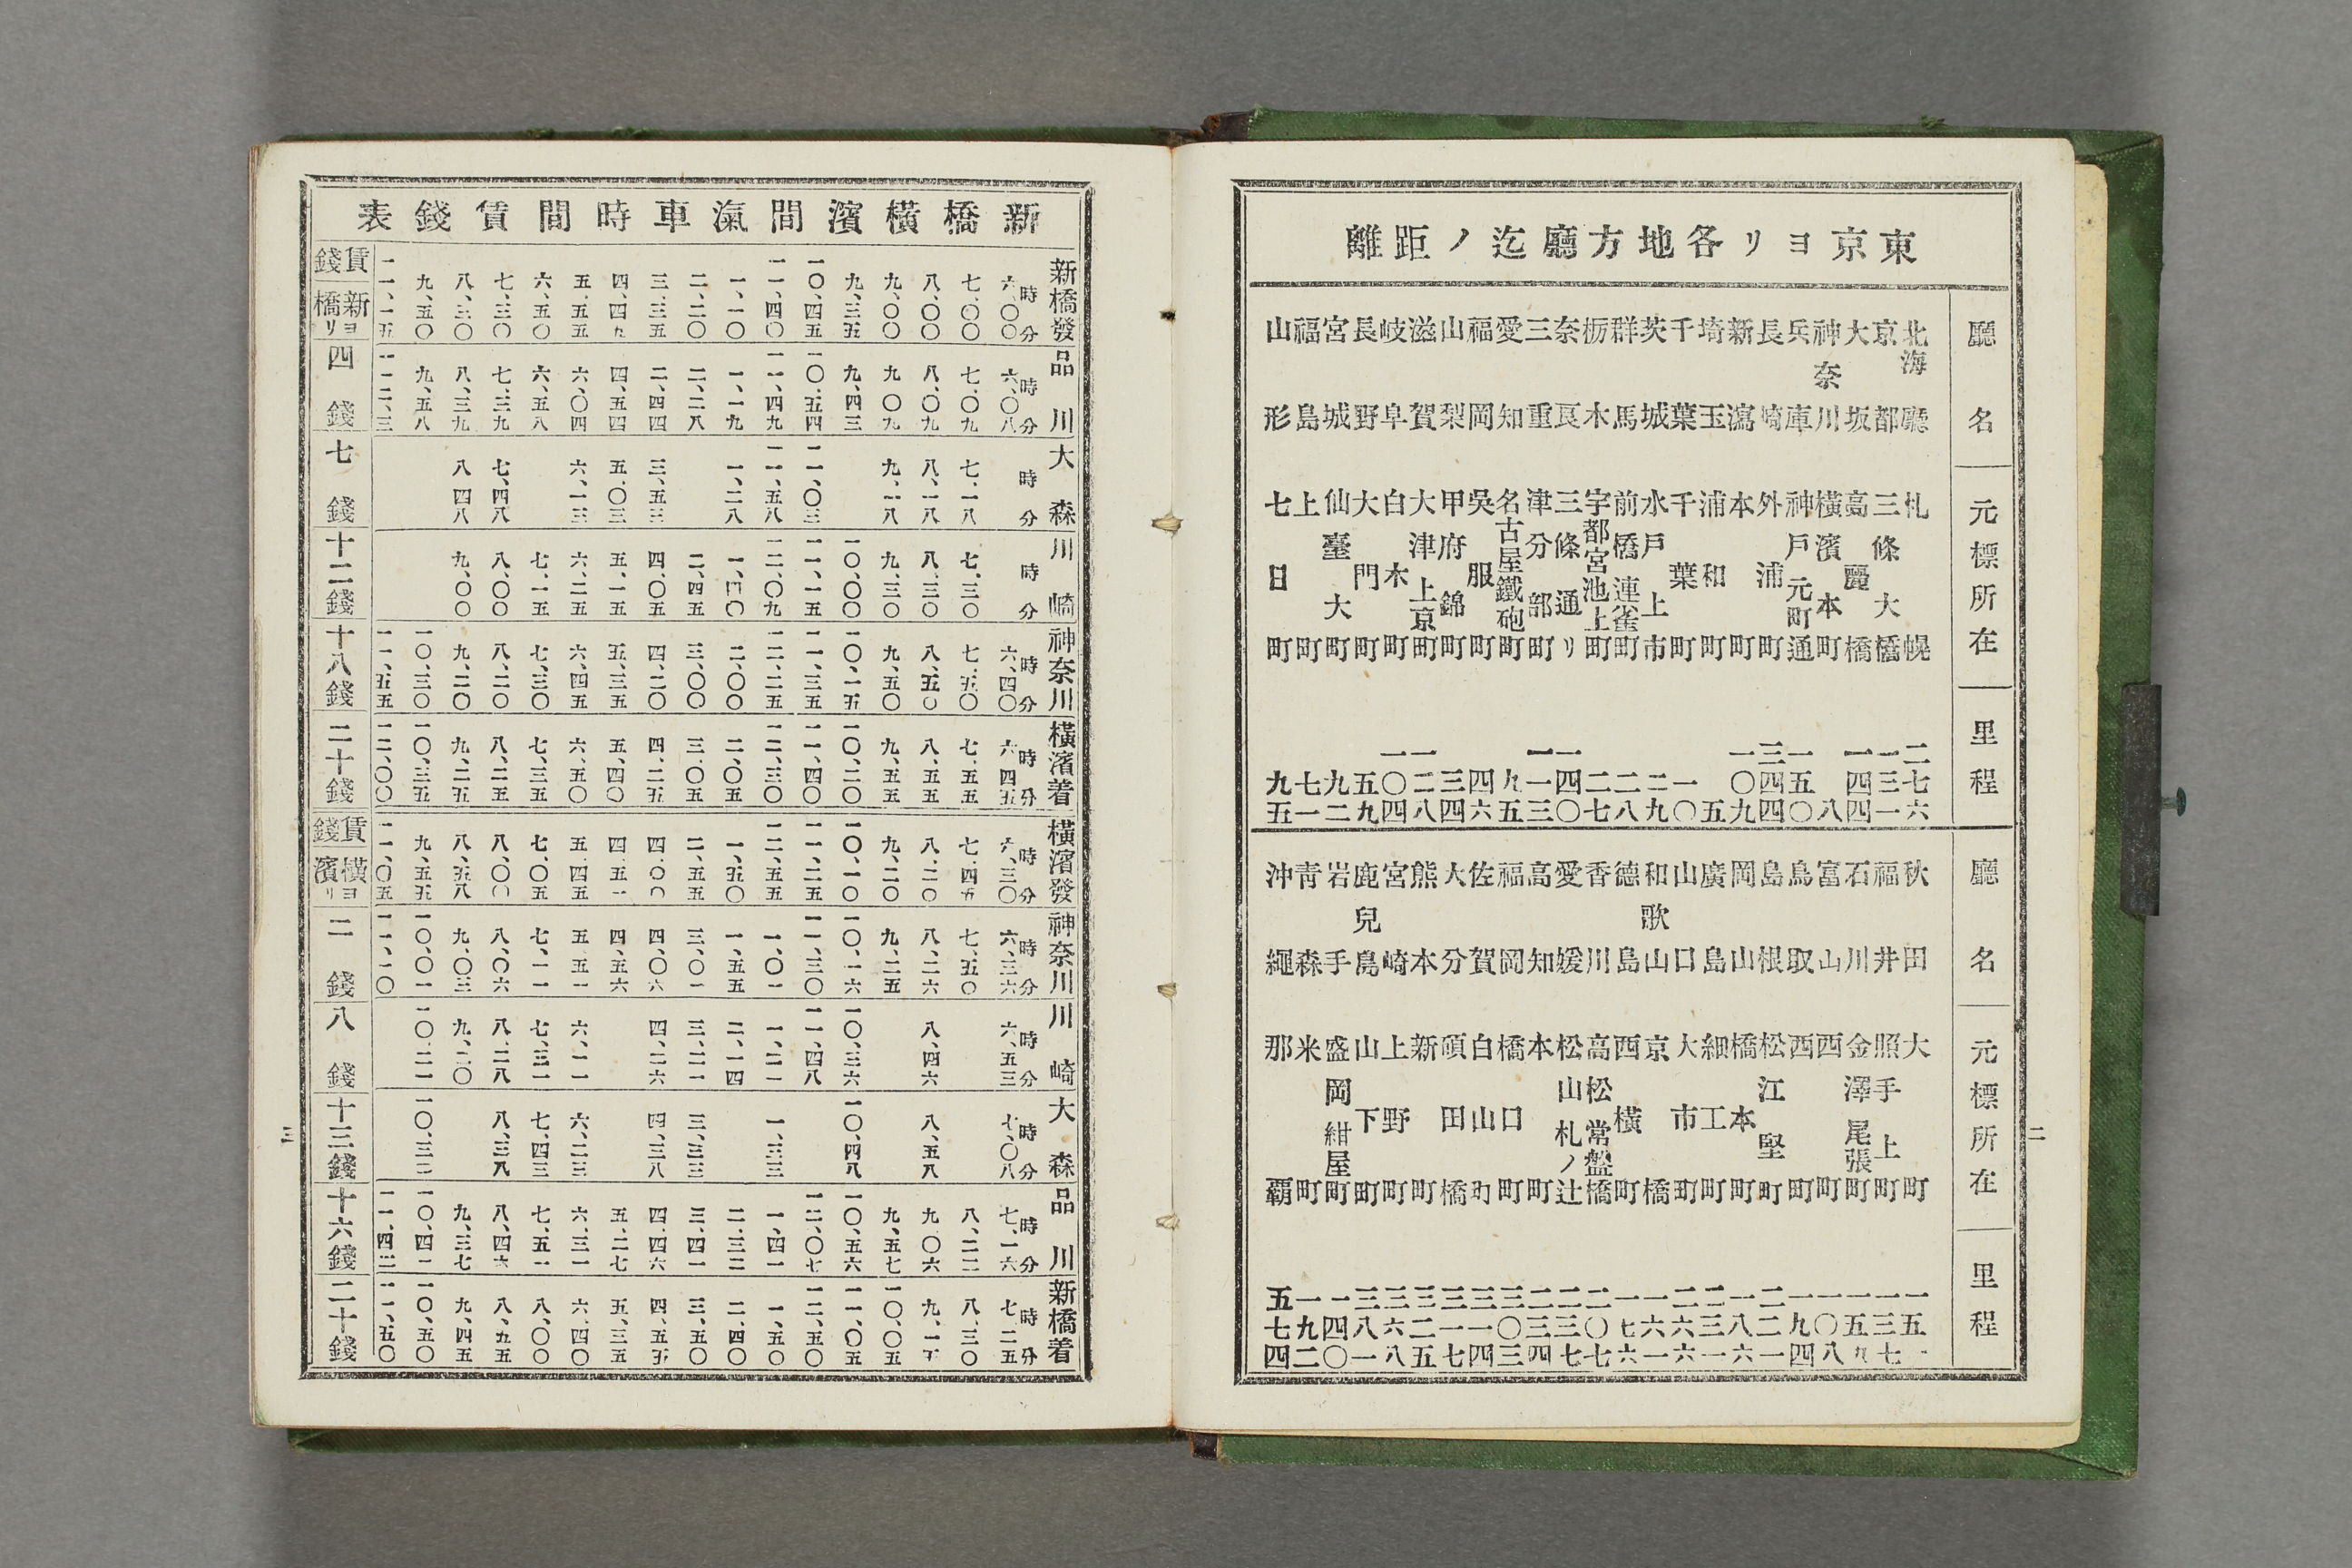 東京ヨリ各地方廳迄ノ距離
廳名 元標所在 里程
北海廳 札幌 二七六
京都 三條大橋 一三一
大坂 高麗橋 一四四
神奈川 横濱本町 八
兵庫 神戸元町通 一五〇
長崎 外浦町 三四四
新瀉 本町 一〇九
埼玉 浦和町 五
千葉 千葉町 一〇
茨城 水戸上市 二九
群馬 前橋連雀町 二八
栃木 宇都宮池上町 二七
奈良 三條通リ 一四〇
三重 津分部町 一一三
愛知 名古屋鐵砲町 九五
福岡 呉服町 四六
山梨 甲府錦町 三四
滋賀 大津上京町 一二八
岐阜 白木町 一〇四
長野 大門町 五九
宮城 仙臺大町 九二
福島 上町 七一
山形 七日町 九五
廳名 元標所在 里程
秋田 大町 一五一
福井 照手上町 一三七
石川 金澤尾張町 一五九
富山 西町 一〇八
鳥取 西町 一九四
島根 松江堅町 二二一
岡山 橋本町 一八六
廣島 細工町 二三一
山口 大市町 二六六
和歌山 京橋 一六一
徳島 西横町 一七六
香川 高松常盤橋 二〇七
愛媛 松山札ノ辻 二三七
高知 本町 二三四
福岡 橋口町 三〇三
佐賀 白山町 三一四
大分 頎田橋 三一七
熊本 新町 三二五
宮崎 上野町 三六八
鹿兒島 山下町 三八一
岩手 盛岡紺屋町 一四〇
青森 米町 一九二
沖繩 那覇 五七四
二
新橋横濱間滊車時間賃錢表
新橋發 時分 六、〇〇 七、〇〇 八、〇〇 九、〇〇 九、三五 一〇、四五 一一、四〇 一、一〇 二、二〇 三、三五 五、五五 六、五〇 七、三〇 八、三〇 九、五〇 一一、一五 賃錢新橋ヨリ
品川 時分 六、〇八 七、〇九 八、〇九 九、〇九 九、四三 一〇、五四 一一、四九 一、一九 二、二八 二、四四 四、五四 六、〇四 六、五八 七、三九 八、三九 九、五八 一一、二三 四錢
大森 時分 七、一八 八、一八 九、一八 一一、〇三 一一、五八 一、二八 三、五三 五、〇三 六、一三 七、四八 八、四八 七錢
川崎 時分 七、三〇 八、三〇 九、三〇 一〇、〇〇 一一、一五 一二、〇九 一、四〇 二、四五 四、〇五 五、一五 六、二五 七、一五 八、〇〇 九、〇〇 十二錢
神奈川 時分 六、四〇 七、五〇 八、五〇 九、五〇 一〇、一五 一一、三五 一二、二五 二、〇〇 三、〇〇 四、二〇 五、三五 六、四五 七、三〇 八、二〇 九、二〇 一〇、三〇 一一、五五 十八錢
横濱着 時分 六、四五 七、五五 八、五五 九、五五 一〇、二〇 一一、四〇 一二、三〇 二、〇五 三、〇五 四、二五 五、四〇 六、五〇 七、三五 八、二五 九、二五 一〇、三五 一二、〇〇 二十錢
横濱發 時分 六、三〇 七、四五 八、二〇 九、二〇 一〇、一〇 一一、二五 一二、五五 一、五〇 二、五五 四、〇〇 四、五一 五、四五 七、〇五 八、〇〇 八、五八 九、五五 一一、〇五 賃錢横濱ヨリ
神奈川 時分 六、三六 七、五〇 八、二六 九、二五 一〇、一六 一一、三〇 一、〇一 一、五五 三、〇一 四、〇六 四、五六 五、五一 七、一一 八、〇六 九、〇三 一〇、〇一 一一、一〇 二錢
川崎 時分 六、五三 八、四六 一〇、三六 一一、四八 一、二一 二、一四 三、二一 四、二六 六、一一 七、三一 八、二八 九、二〇 一〇、二一 八錢
大森 時分 七、〇八 八、五八 一〇、四八 一、三三 三、三三 四、三八 六、二三 七、四三 八、三八 一〇、三三 十三錢
品川 時分 七、一六 八、二二 九、〇六 九、五七 一〇、五六 一二、〇七 一、四一 二、三二 三、四一 四、四六 五、二七 六、三一 七、五一 八、四六 九、三七 一〇、四一 一一、四二 十六錢
新橋着 時分 七、二五 八、三〇 九、一五 一〇、〇五 一一、〇五 一二、五〇 一、五〇 二、四〇 三、五〇 四、五五 五、三五 六、四〇 八、〇〇 八、五五 九、四五 一〇、五〇 一一、五〇 二十錢
三